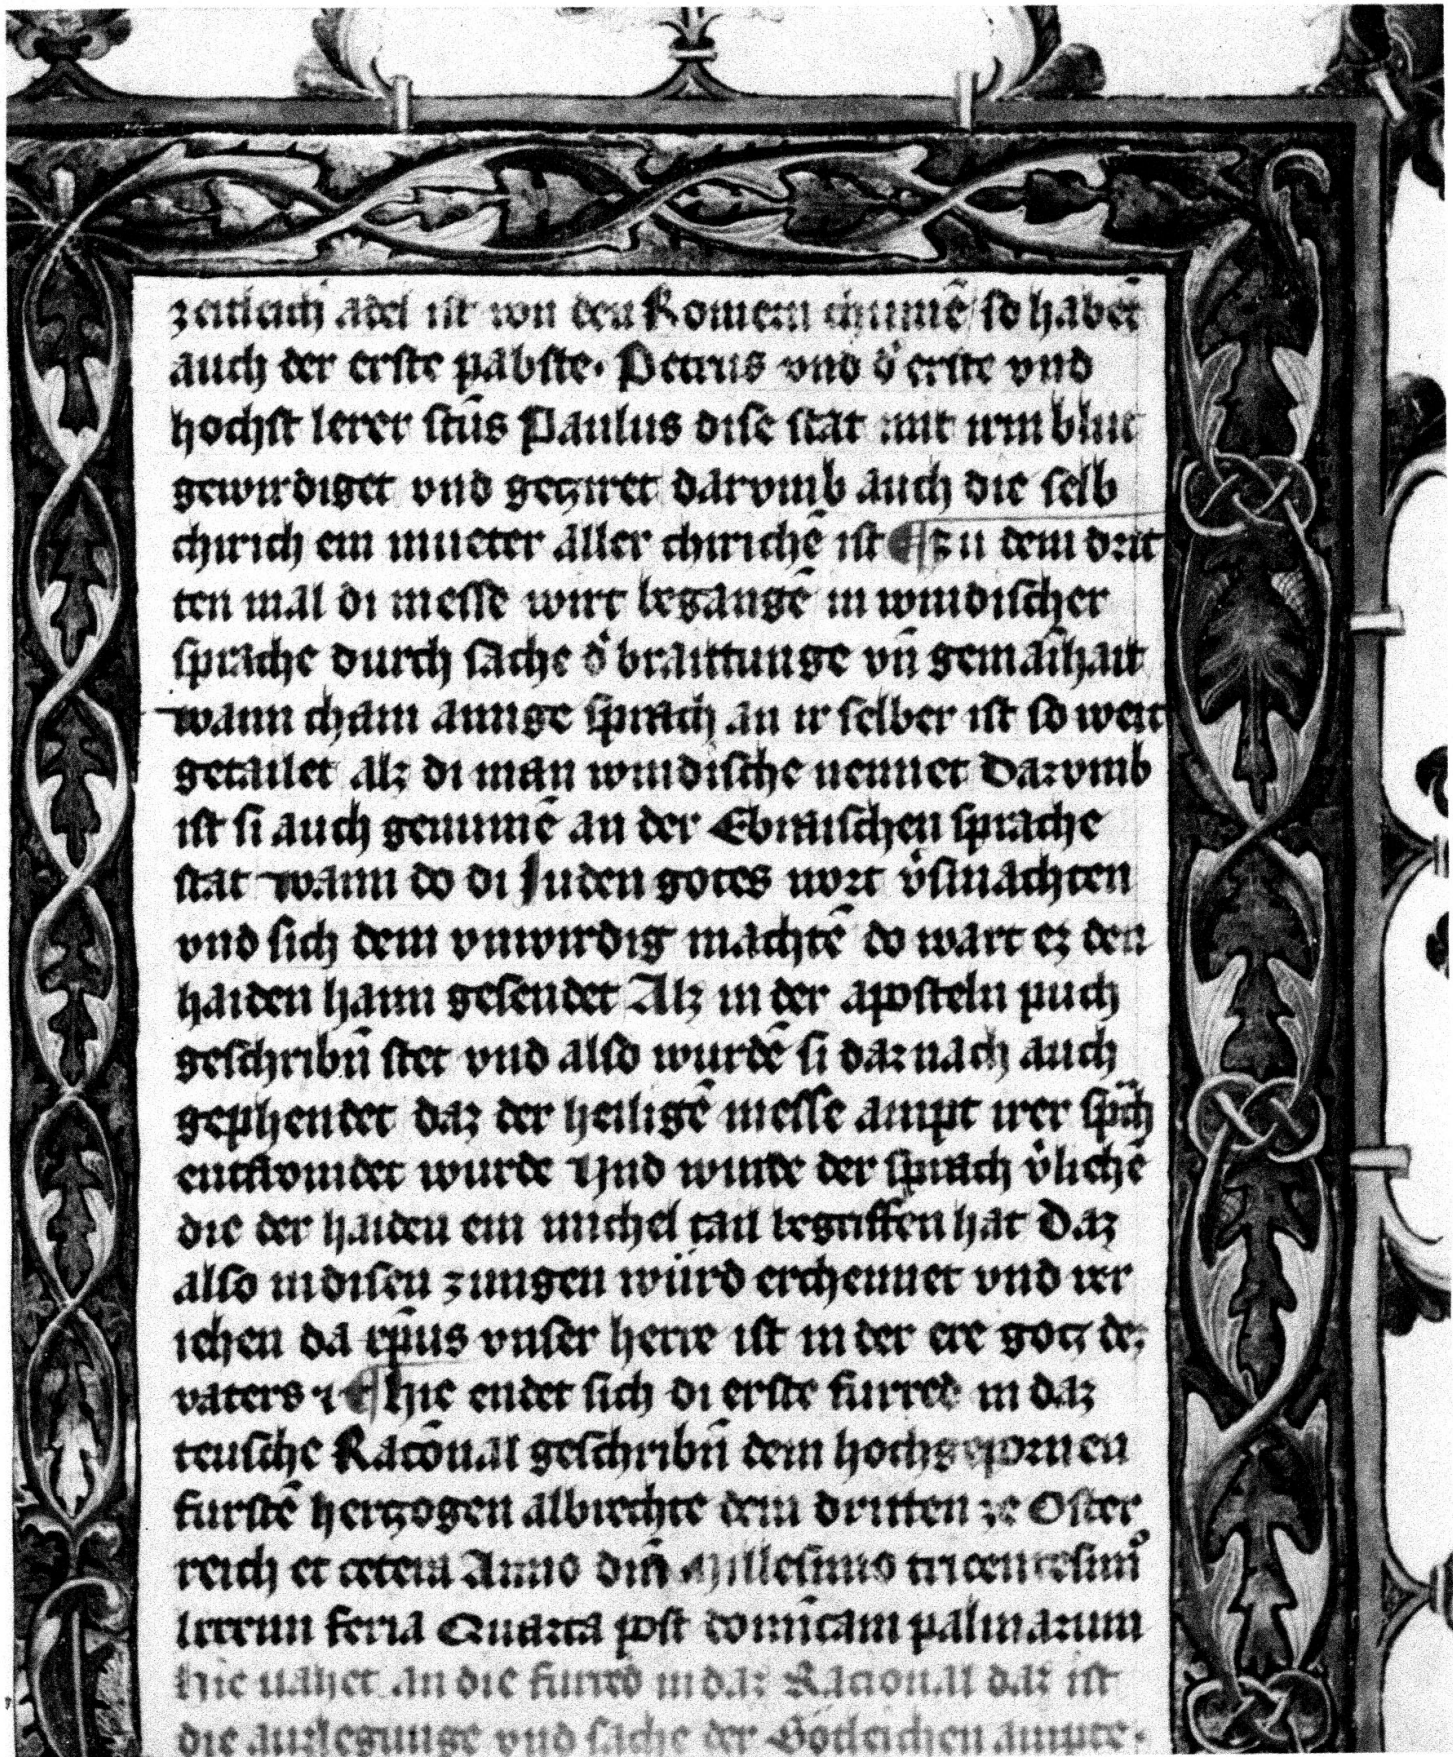 zeitleich adel ist von den Romern chumē so habēt
auch der erste pabste· Petrus vnd d̾ erste vnd
hochst lerer stūs Paulus dise stat mit irm blut
gewirdiget vnd gecziret darvmb auch die selb
chirich ein mueter aller chirichē ist ¶ Zu dem drit
ten mal di messe wirt begangē in windischer
sprache durch sache d̾ braittunge vn̄ gemaīhait
wann cham ainige sprach an ir selber ist so weit
getailet alz di man windische nennet Darvmb
ist si auch genumē an der Ebraischen sprache
stat wann do di Juden gotes wort v̾smachten
vnd sich dem vnwirdig machtē do wart ez den
haiden hann gesendet Alz in der aposteln puch
geschribn̄ stet vnd also wurdē si darnach auch
gephendet daz der heiligē messe ampt irer sp̄ch
entfromdet wurde Vnd wurde der sprach v̾lichē
die der haiden ein michel tail begriffen hat Daz
also in disen zungen würd erchennet vnd ver
iehen da xp̄us vnser herre ist in der ere gotz dez
vaters ⁊ ¶ hie endet sich di erste furred in daz
teusche Racōnal geschribn̄ dem hochgepornen
furstē herczogen albrechte dem dritten ze Oster
reich et cetera Anno dn̄i Millesimo tricentesimo
lxxxiiii feria Quarta post domīcam palmarum
hie nahet an die furred in daz Racional daz ist
die auzlegunge vnd sache der Gotleichen ampte·